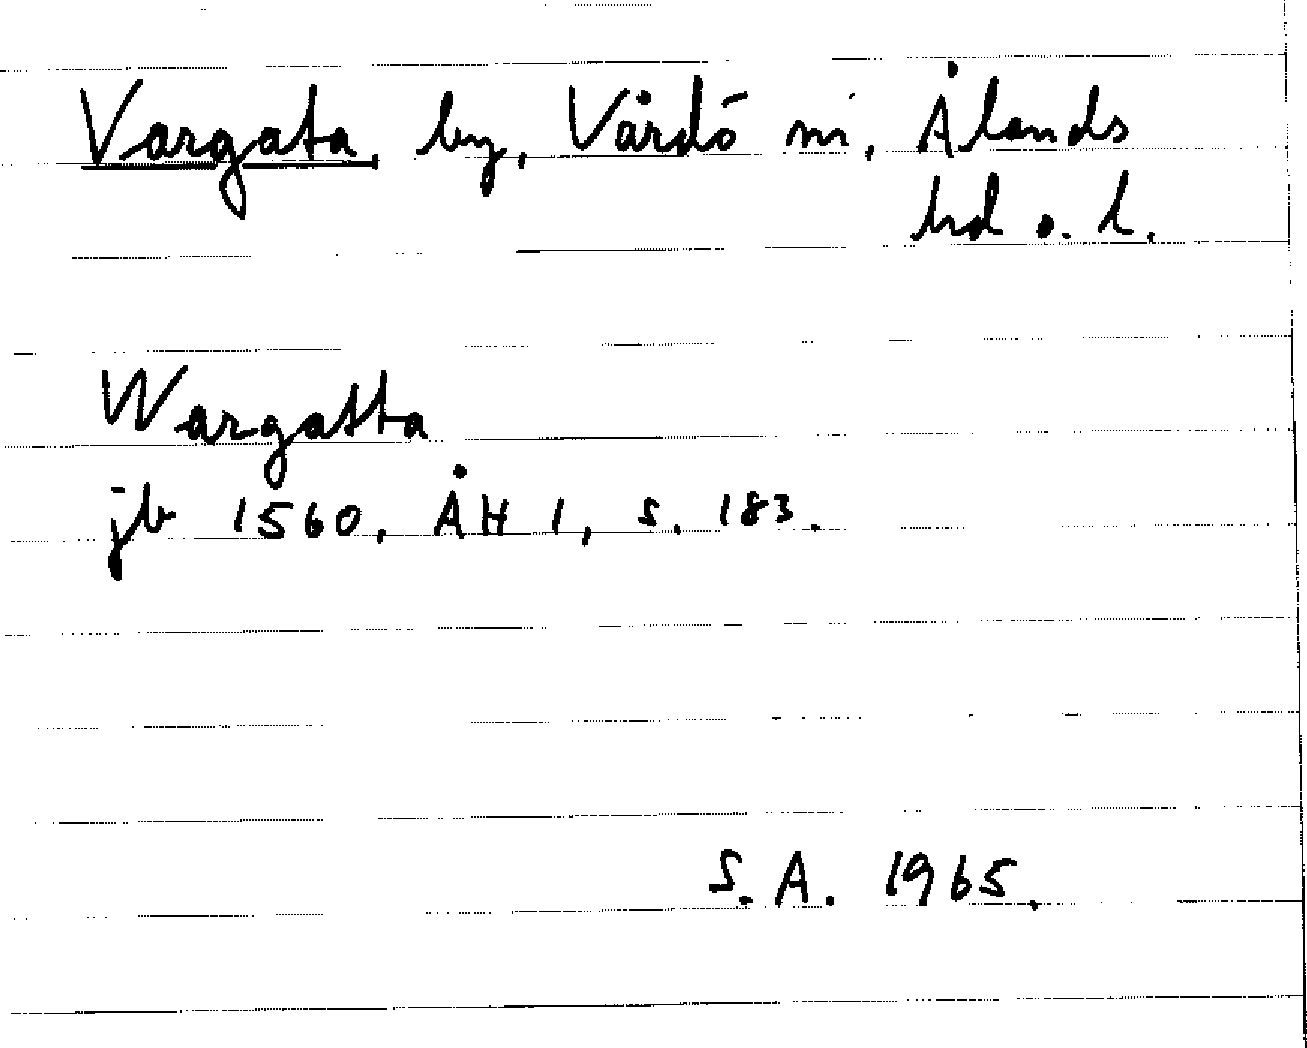 Vargata by, Vårdö sn, Ålands
hd o. l.
Wargatta
jb 1560, ÅH 1, s. 183.
S.A. 1965.